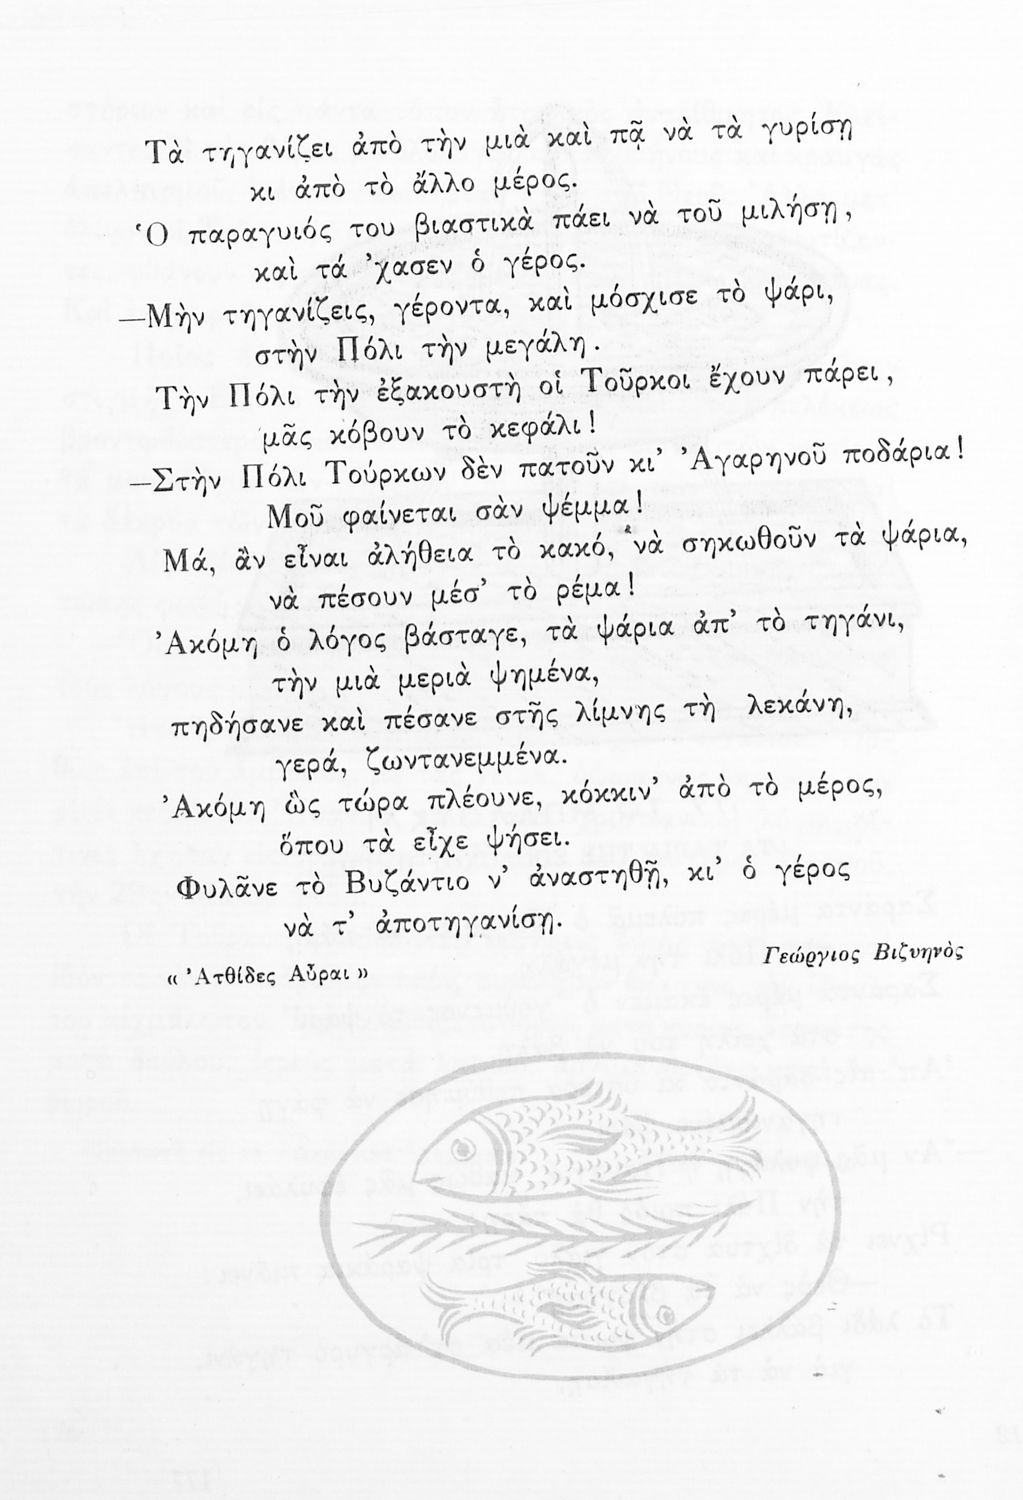 Τὰ τηγανίζει ἀπὸ τὴν μιὰ καὶ πᾷ νὰ τὰ γυρίσῃ
κι ἀπὸ τὸ ἄλλο μέρος.
Ὁ παραγυιός του βιαστικὰ πάει νὰ τοῦ μιλήσῃ,
καὶ τά ’χασεν ὁ γέρος.
—Μὴν τηγανίζεις, γέροντα, καὶ μόσχισε τὸ ψάρι,
στὴν Πόλι τὴν μεγάλη.
Τὴν Πόλι τὴν ἐξακουστὴ οἱ Τοῦρκοι ἔχουν πάρει,
μᾶς κόβουν τὸ κεφάλι!
—Στὴν Πόλι Τούρκων δὲν πατοῦν κι’ Ἀγαρηνοῦ ποδάρια!
Μοῦ φαίνεται σὰν ψέμμα!
Μά, ἂν εἶναι ἀλήθεια τὸ κακό, νὰ σηκωθοῦν τὰ ψάρια,
νὰ πέσουν μέσ’ τὸ ρέμα!
Ἀκόμη ὁ λόγος βάσταγε, τὰ ψάρια ἀπ’ τὸ τηγάνι,
τὴν μιὰ μεριὰ ψημένα,
πηδήσανε καὶ πέσανε στῆς λίμνης τὴ λεκάνη,
γερά, ζωντανεμμένα.
Ἀκόμη ὣς τώρα πλέουνε, κόκκιν’ ἀπὸ τὸ μέρος,
ὅπου τὰ εἶχε ψήσει.
Φυλᾶνε τὸ Βυζάντιο ν’ ἀναστηθῇ, κι’ ὁ γέρος
νὰ τ’ ἀποτηγανίσῃ.
Γεώργιος Βιζυηνὸς
« Ἀτθίδες Αὖραι »